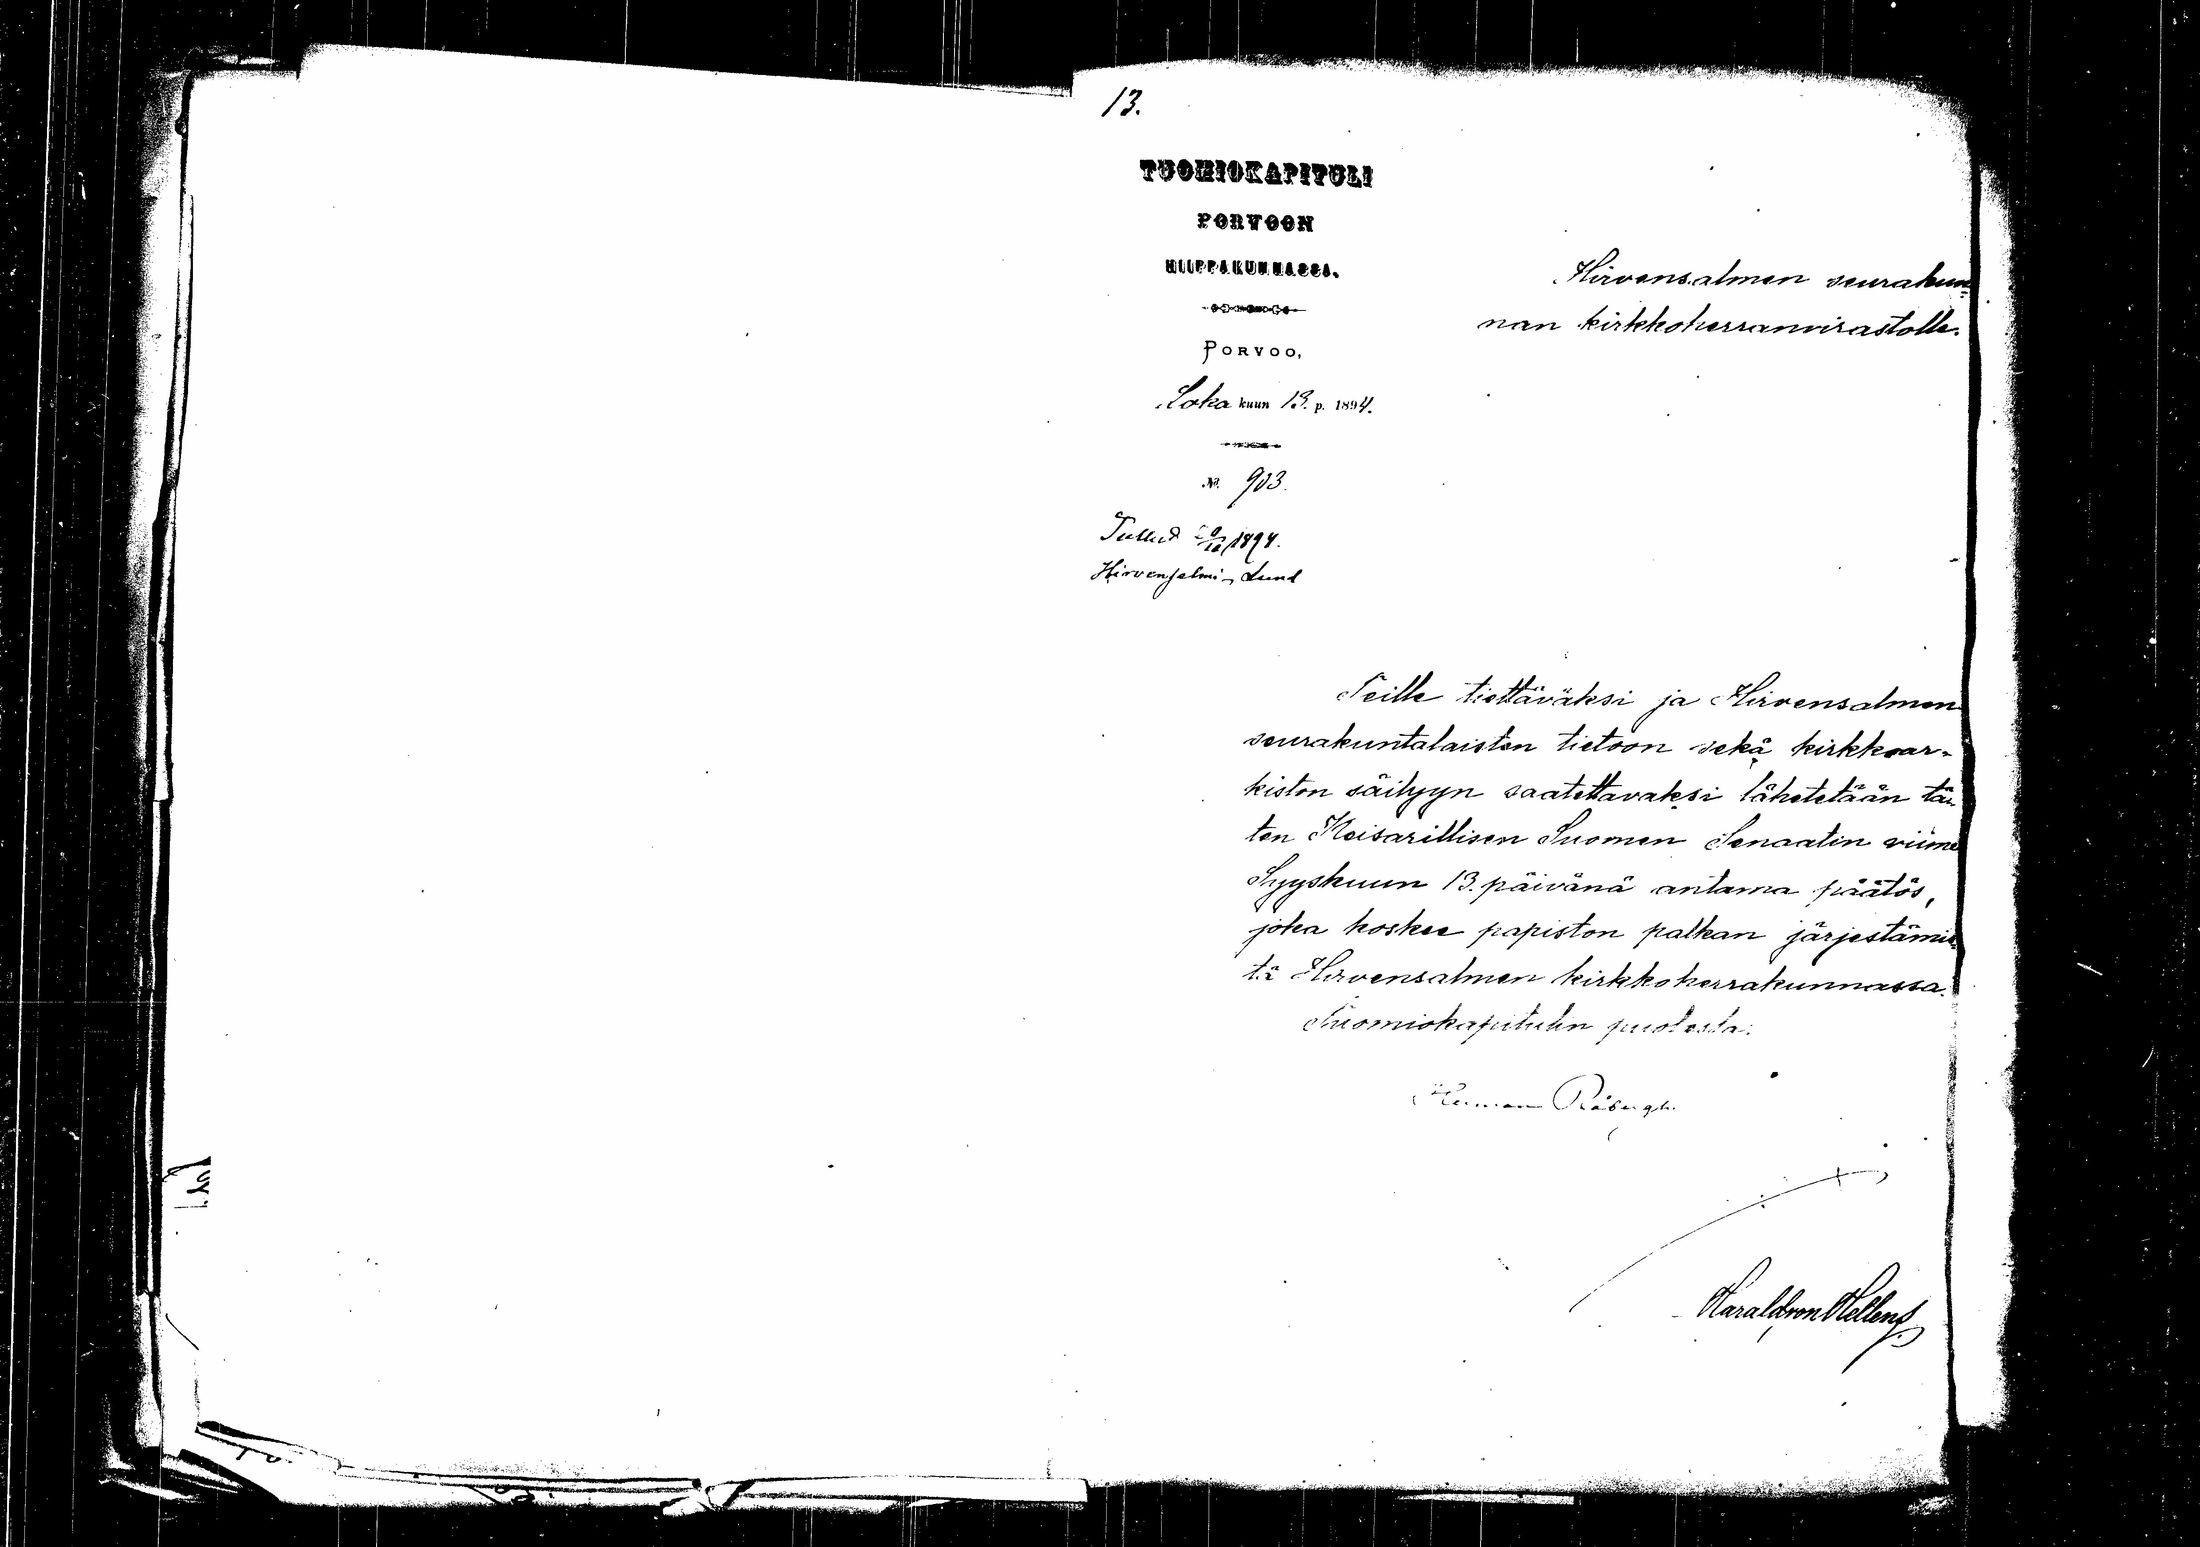 13.
TUOMIOKAPITULI
PORVOON
HIIPPAKUNNASSA.
PORVOO,
Loka kuun 13. p. 1894.
No. 903.
Tullut 20/10 1894.
Hirvensalmi, Lund
Hirvensalmen seurakun-
nan kirkkoherranvirastolle.
Teille tiettäväksi ja Hirvensalmen
seurakuntalaisten tietoon sekä kirkkoar-
kiston säilyyn saatettavaksi lähetetään tä-
ten Keisarillisen Suomen Senaatin viime
Syyskuun 13. päivänä antama päätös,
joka koskee papiston palkan järjestämis-
tä Hirvensalmen kirkkoherrakunnassa.
Tuomiokapitulin puolesta:
Herman Råbergh.
Harald von Hellens